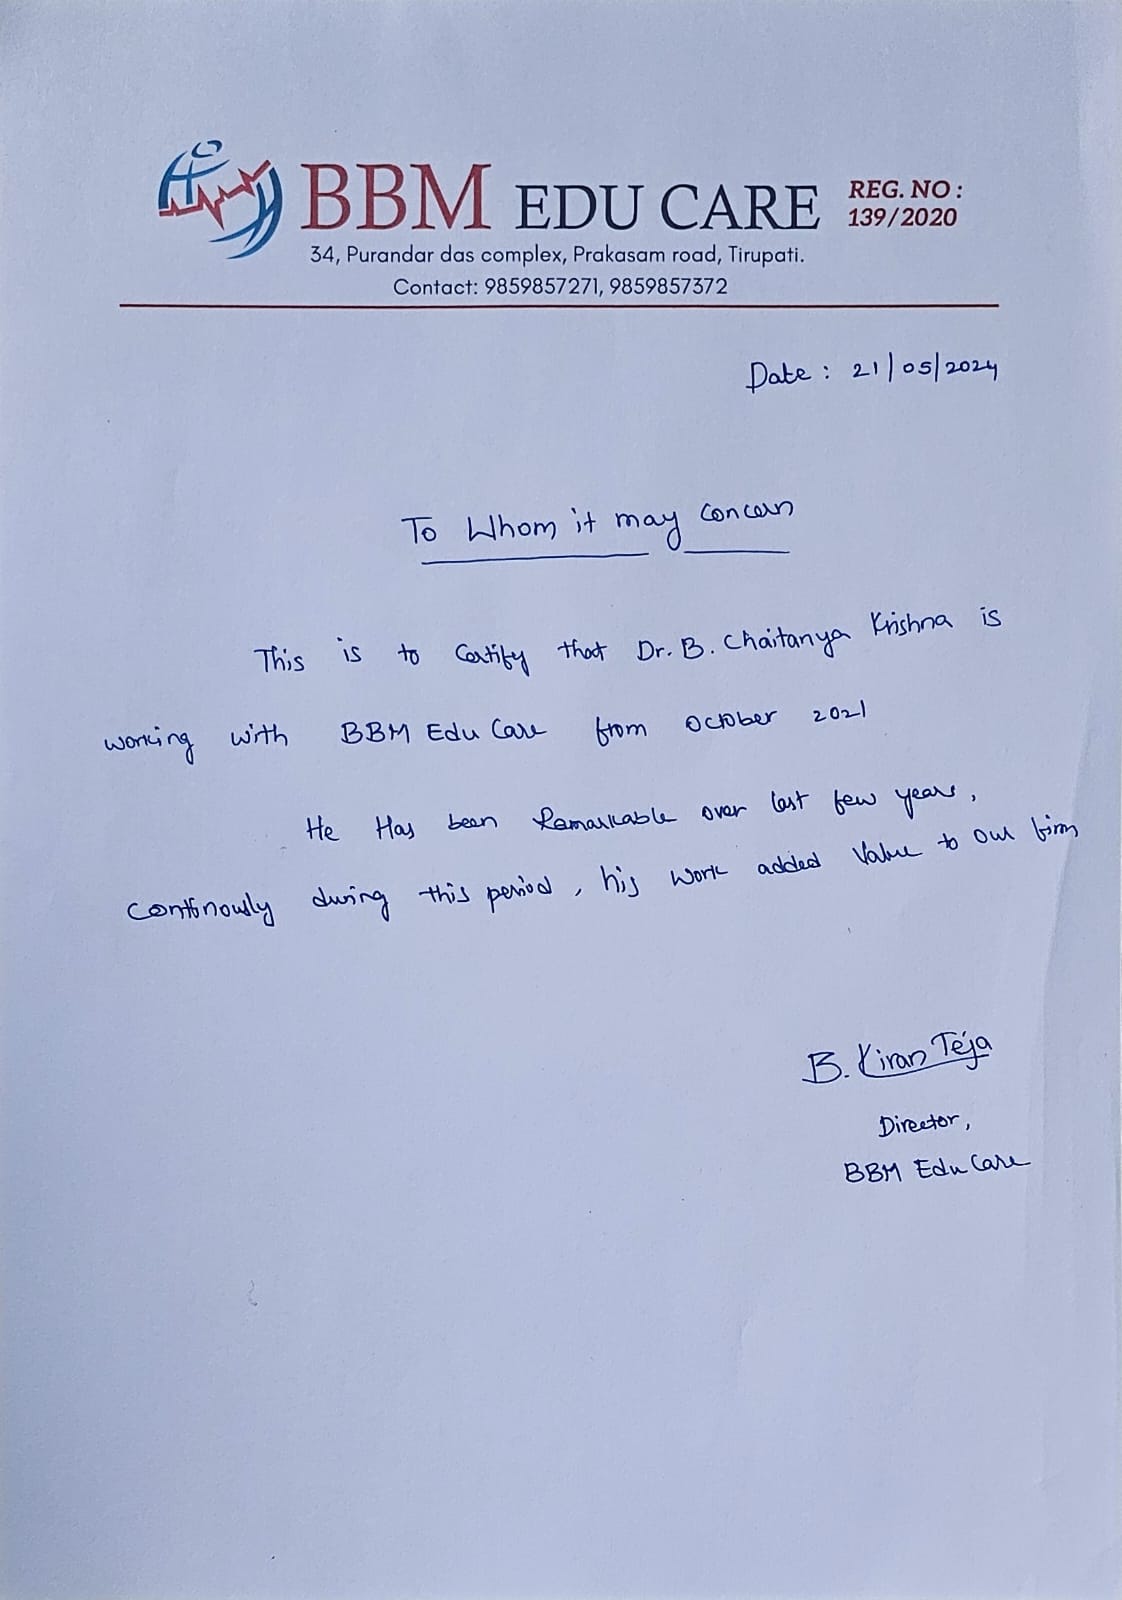 BBM EDU CARE
REG. NO :
139/2020
34, Purandar das complex, Prakasam road, Tirupati.
Contact: 9859857271, 9859857372
Date : 21/05/2024
To Whom it may concern
This is to Certify that Dr. B. Chaitanya Krishna is
working with BBM Edu Care from October 2021
He Has been Remarkable over last few years,
Continously during this period, his work added Value to our firm
B. Kiran Teja
Director,
BBM Edu Care